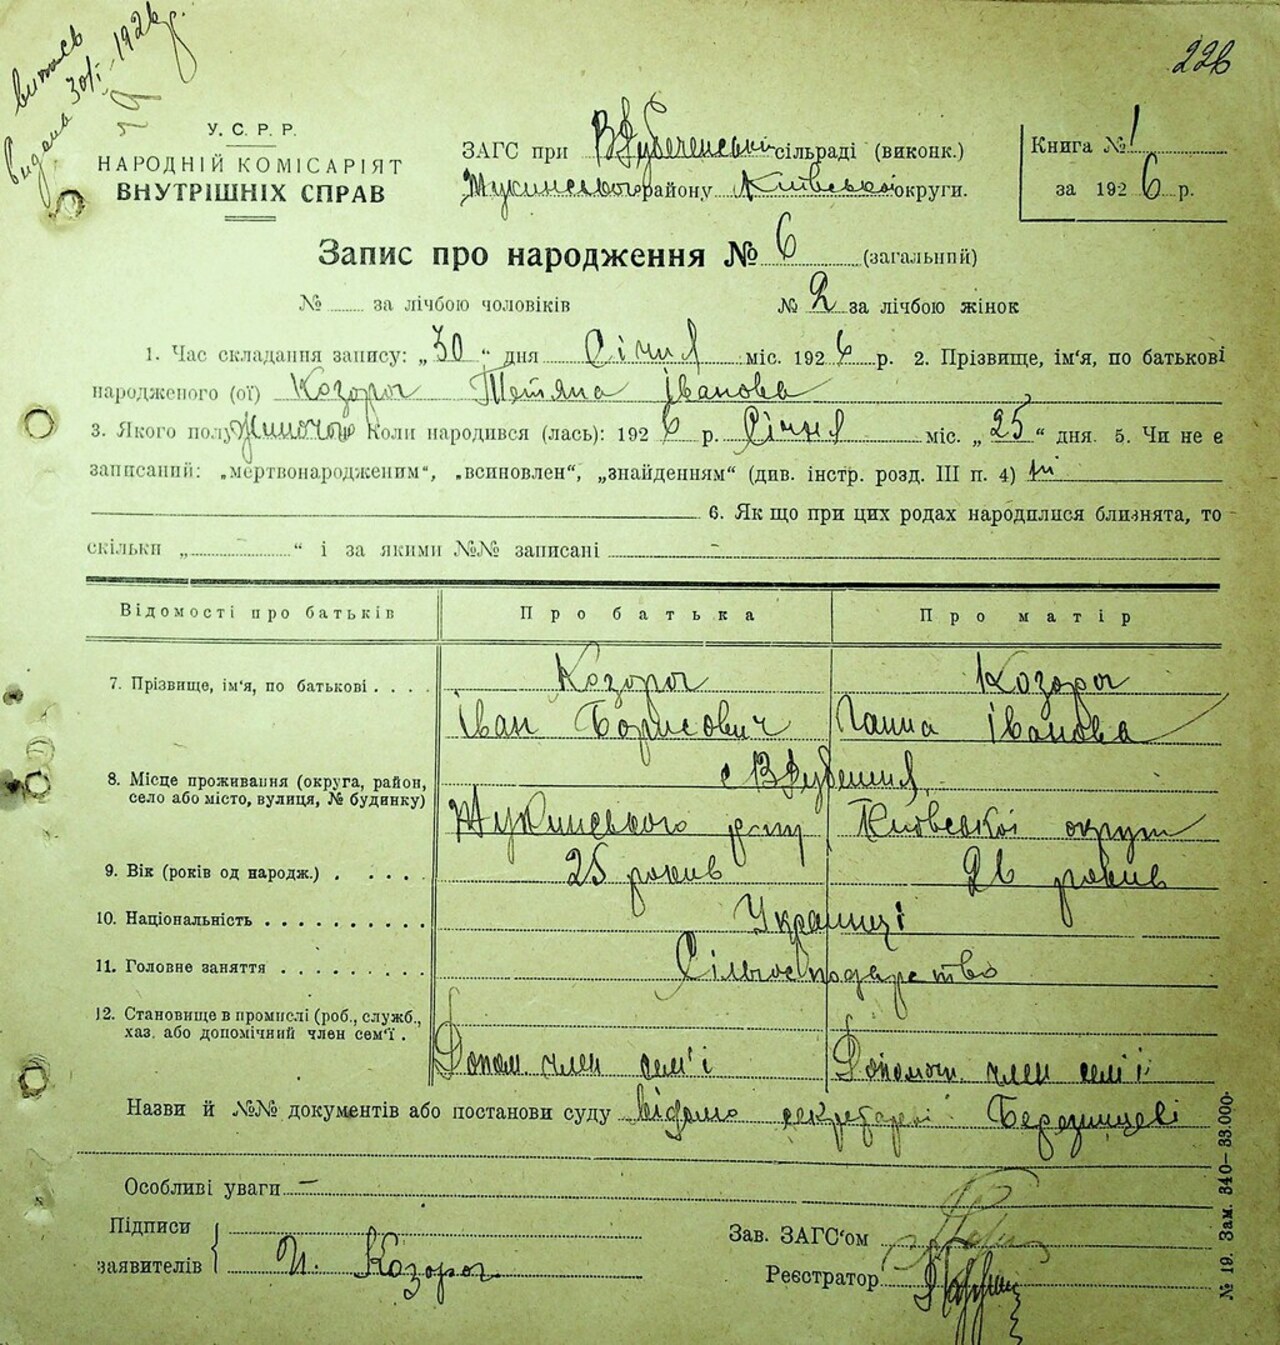 витяг
видано 30/I 1926 р.
226
У. С. Р. Р.
НАРОДНІЙ КОМІСАРІЯТ
ВНУТРІШНІХ СПРАВ
ЗАГС при В Дубеченській сільраді (виконк.)
Жукинського району Київської округи.
Книга № 1
за 1926 р.
Запис про народження № 6 (загальний)
№ за лічбою чоловіків № 2 за лічбою жінок
1. Час складання запису: „30“ дня Січня міс. 1926 р. 2. Прізвище, ім'я, по батькові
народженого (ої) Козорог Тетяна Іванова
3. Якого полу Жиночого Коли народився (лась): 1926 р. Січня міс. „25“ дня. 5. Чи не є
записаний: „мертвонародженим“, „всиновлен“, „знайденням“ (див. інстр. розд. III п. 4) ні
6. Як що при цих родах народилися близнята, то
скільки „ “ і за якими №№ записані -
Відомості про батьків Про батька Про матір
7. Прізвище, ім'я, по батькові . . . . Козорог Козорог
Іван Борисович Ганна Іванова
8. Місце проживання (округа, район, с В Дубешня
село або місто, вулиця, № будинку) Жукинського р-ну Київської округи
9. Вік (років од народж.) . . . . . 25 рокив 26 рокив
10. Національність . . . . . . . . . . Украинці
11. Головне заняття . . . . . . . . . Сільгосподарство
12. Становище в промислі (роб., служб.,
хаз. або допомічний член сем'ї . Допом. член сем'і Допомочн. член сем'і
Назви й №№ документів або постанови суду відомо секретареві
Особливі уваги —
Підписи Зав. ЗАГС'ом
заявителів И. Козорог Реєстратор
№ 19. Зам. 340—33.000.